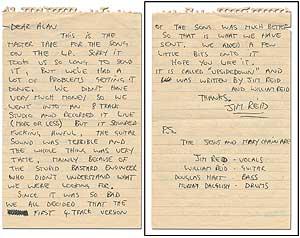 DEAR ALAN
THIS IS THE
MASTER TAPE FOR THE SONG
ON THE LP. SORRY IT
TOOK US SO LONG TO SEND
IT, BUT WE'VE HAD A
LOT OF PROBLEMS GETTING IT
DONE. WE DIDN'T HAVE
VERY MUCH MONEY SO WE
WENT INTO AN 8 TRACK
STUDIO AND RECORDED IT LIVE
(MORE OR LESS) BUT IT SOUNDED
FUCKING AWFUL, THE GUITAR
SOUND WAS TERRIBLE AND
THE WHOLE THING WAS VERY
TAME, MAINLY BECAUSE OF
THE STUPID BASTARD ENGINEER
WHO DIDN'T UNDERSTAND WHAT
WE WERE LOOKING FOR.
SINCE IT WAS SO BAD
WE ALL DECIDED THAT THE
FIRST 4 TRACK VERSION
OF THE SONG WAS MUCH BETTER
SO THAT IS WHAT WE HAVE
SENT. WE ADDED A FEW
LITTLE BITS ONTO IT
HOPE YOU LIKE IT.
IT IS CALLED "UPSIDEDOWN" AND
WAS WRITTEN BY JIM REID
AND WILLIAM REID
THANKS,
JIM REID
P.S.
THE JESUS AND MARY CHAIN ARE
JIM REID - VOCALS
WILLIAM REID - GUITAR
DOUGLAS HART - BASS
MURRAY DALGLISH - DRUMS